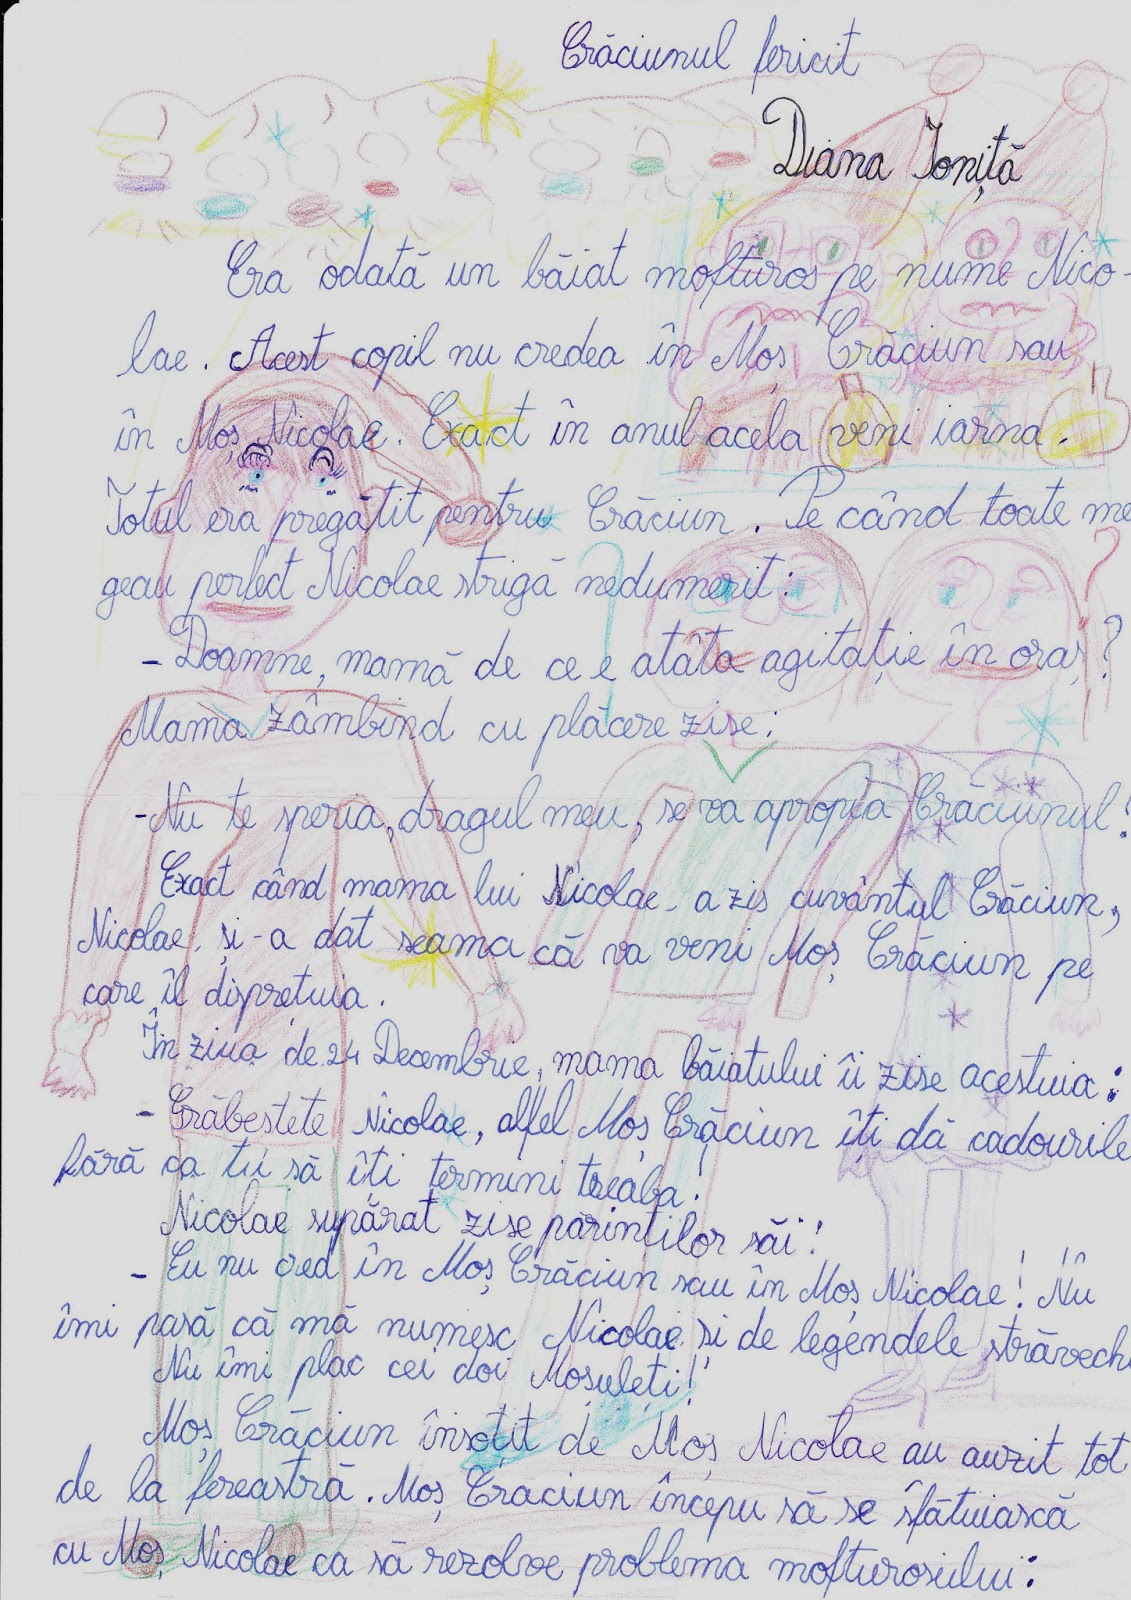 Crăciunul fericit
Diana Ioniță
Era odată un băiat mofturos pe nume Nico-
lae. Acest copil nu credea în Moș Crăciun sau
în Moș Nicolae. Exact în anul acela veni iarna.
Totul era pregătit pentru Crăciun. Pe când toate mer
geau perfect Nicolae strigă nedumerit:
- Doamne, mamă de ce e atâta agitație în oraș?
Mama zâmbind cu plăcere zise:
- Nu te speria, dragul meu, se va apropia Crăciunul!
Exact când mama lui Nicolae a zis cuvântul Crăciun,
Nicolae și-a dat seama că va veni Moș Crăciun pe
care îl disprețuia.
În ziua de 24 Decembrie, mama băiatului îi zise acestuia:
- Grăbestete Nicolae, alfel Moș Crăciun îți dă cadourile
fără ca tu să îți termini treaba!
Nicolae supărat zise părinților săi!
- Eu nu cred în Moș Crăciun sau în Moș Nicolae! Nu
îmi pasă că mă numesc Nicolae și de legendele străvechi
Nu îmi plac cei doi Moșuleți!
Moș Crăciun însoțit de Moș Nicolae au auzit tot
de la fereastră. Moș Crăciun începu să se sfătuiască
cu Moș Nicolae ca să rezolve problema mofturosului: